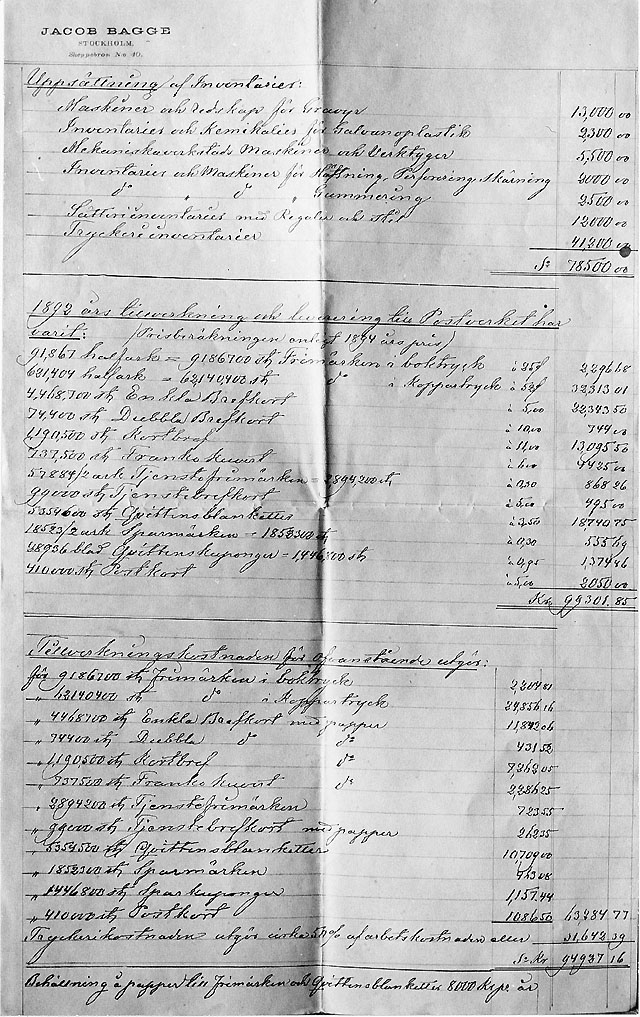 JACOB BAGGE
STOCKHOLM.
Skeppsbron No 40.
Uppsättning af Inventarier:
Maskiner och redskap för Gravyr 13,000 00
Inventarier och Kemikalier för Galvanoplastik 2,300 00
Mekaniskaverkstads Maskiner och Verktyger 5,500 00
Inventarier och Maskiner för Häftning, Perforering, Skärning 2000 00
do " do " Gummering 2500
Sätteriinventarier med Regaler och Stil 12000 00
Tryckeriinventarier 41,200 00
Sa 78500 00
1892 års tillverkning och leverering till Postverket har
varit: (Prisberäkningen enligt 1894 års pris)
91,867 halfark = 9186700 st Frimärken i boktryck à 25f 2,296 68
621,404 halfark = 62140,400 st do i koppartryck à 52f 32313 01
4,468,700 st Enkla Brefkort à 5,00 22343 50
74,400 st Dubbla Brefkort à 10,00 744 00
1,190,500 st Kortbref à 11,00 13,095 50
737,500 st Frankokuvert à 6,00 4425 00
57884/2 ark Tjenstefrimärken = 2894200 st à 0,30 868 26
99000 st Tjenstebrefkort à 5,00 495 00
5354500 st Qvittensblanketter à 3,50 18740 75
18523/2 ark Sparmärken = 1852300 st à 0,30 555 69
28936 blad Qvittenskuponger = 1,446,800 st à 0,95 1,374 86
410000 st Postkort à 5,00 2050 00
Kr 99301.85
Tillverkningskostnaden för ofvanstående utgör:
för 9186700 st Frimärken i boktryck 2,204 81
" 62140400 st do i Koppartryck 24,856 16
" 4468700 st Enkla Brefkort med papper 11,842 06
" 74400 st Dubbla do do 431 52
" 1,190,500 st Kortbref do 7,262 05
" 737500 st Frankokuvert do 2,286 25
" 2894200 st Tjenstefrimärken 723 55
" 99000 st Tjenstebrefkort med papper 262 35
" 5354500 st Qvittensblanketter 10,709 00
" 1852300 st Sparmärken 463 08
" 1446800 st Sparkuponger 1,157 44
" 410000 st Postkort 1086 50 63,284 77
Tryckerikostnaden utgör cirka 50% af arbetskostnaden eller 31,642 39
Sa Kr 94937 16
Behållning å papper till Frimärken och Qvittensblanketter 8000 Kr pr år